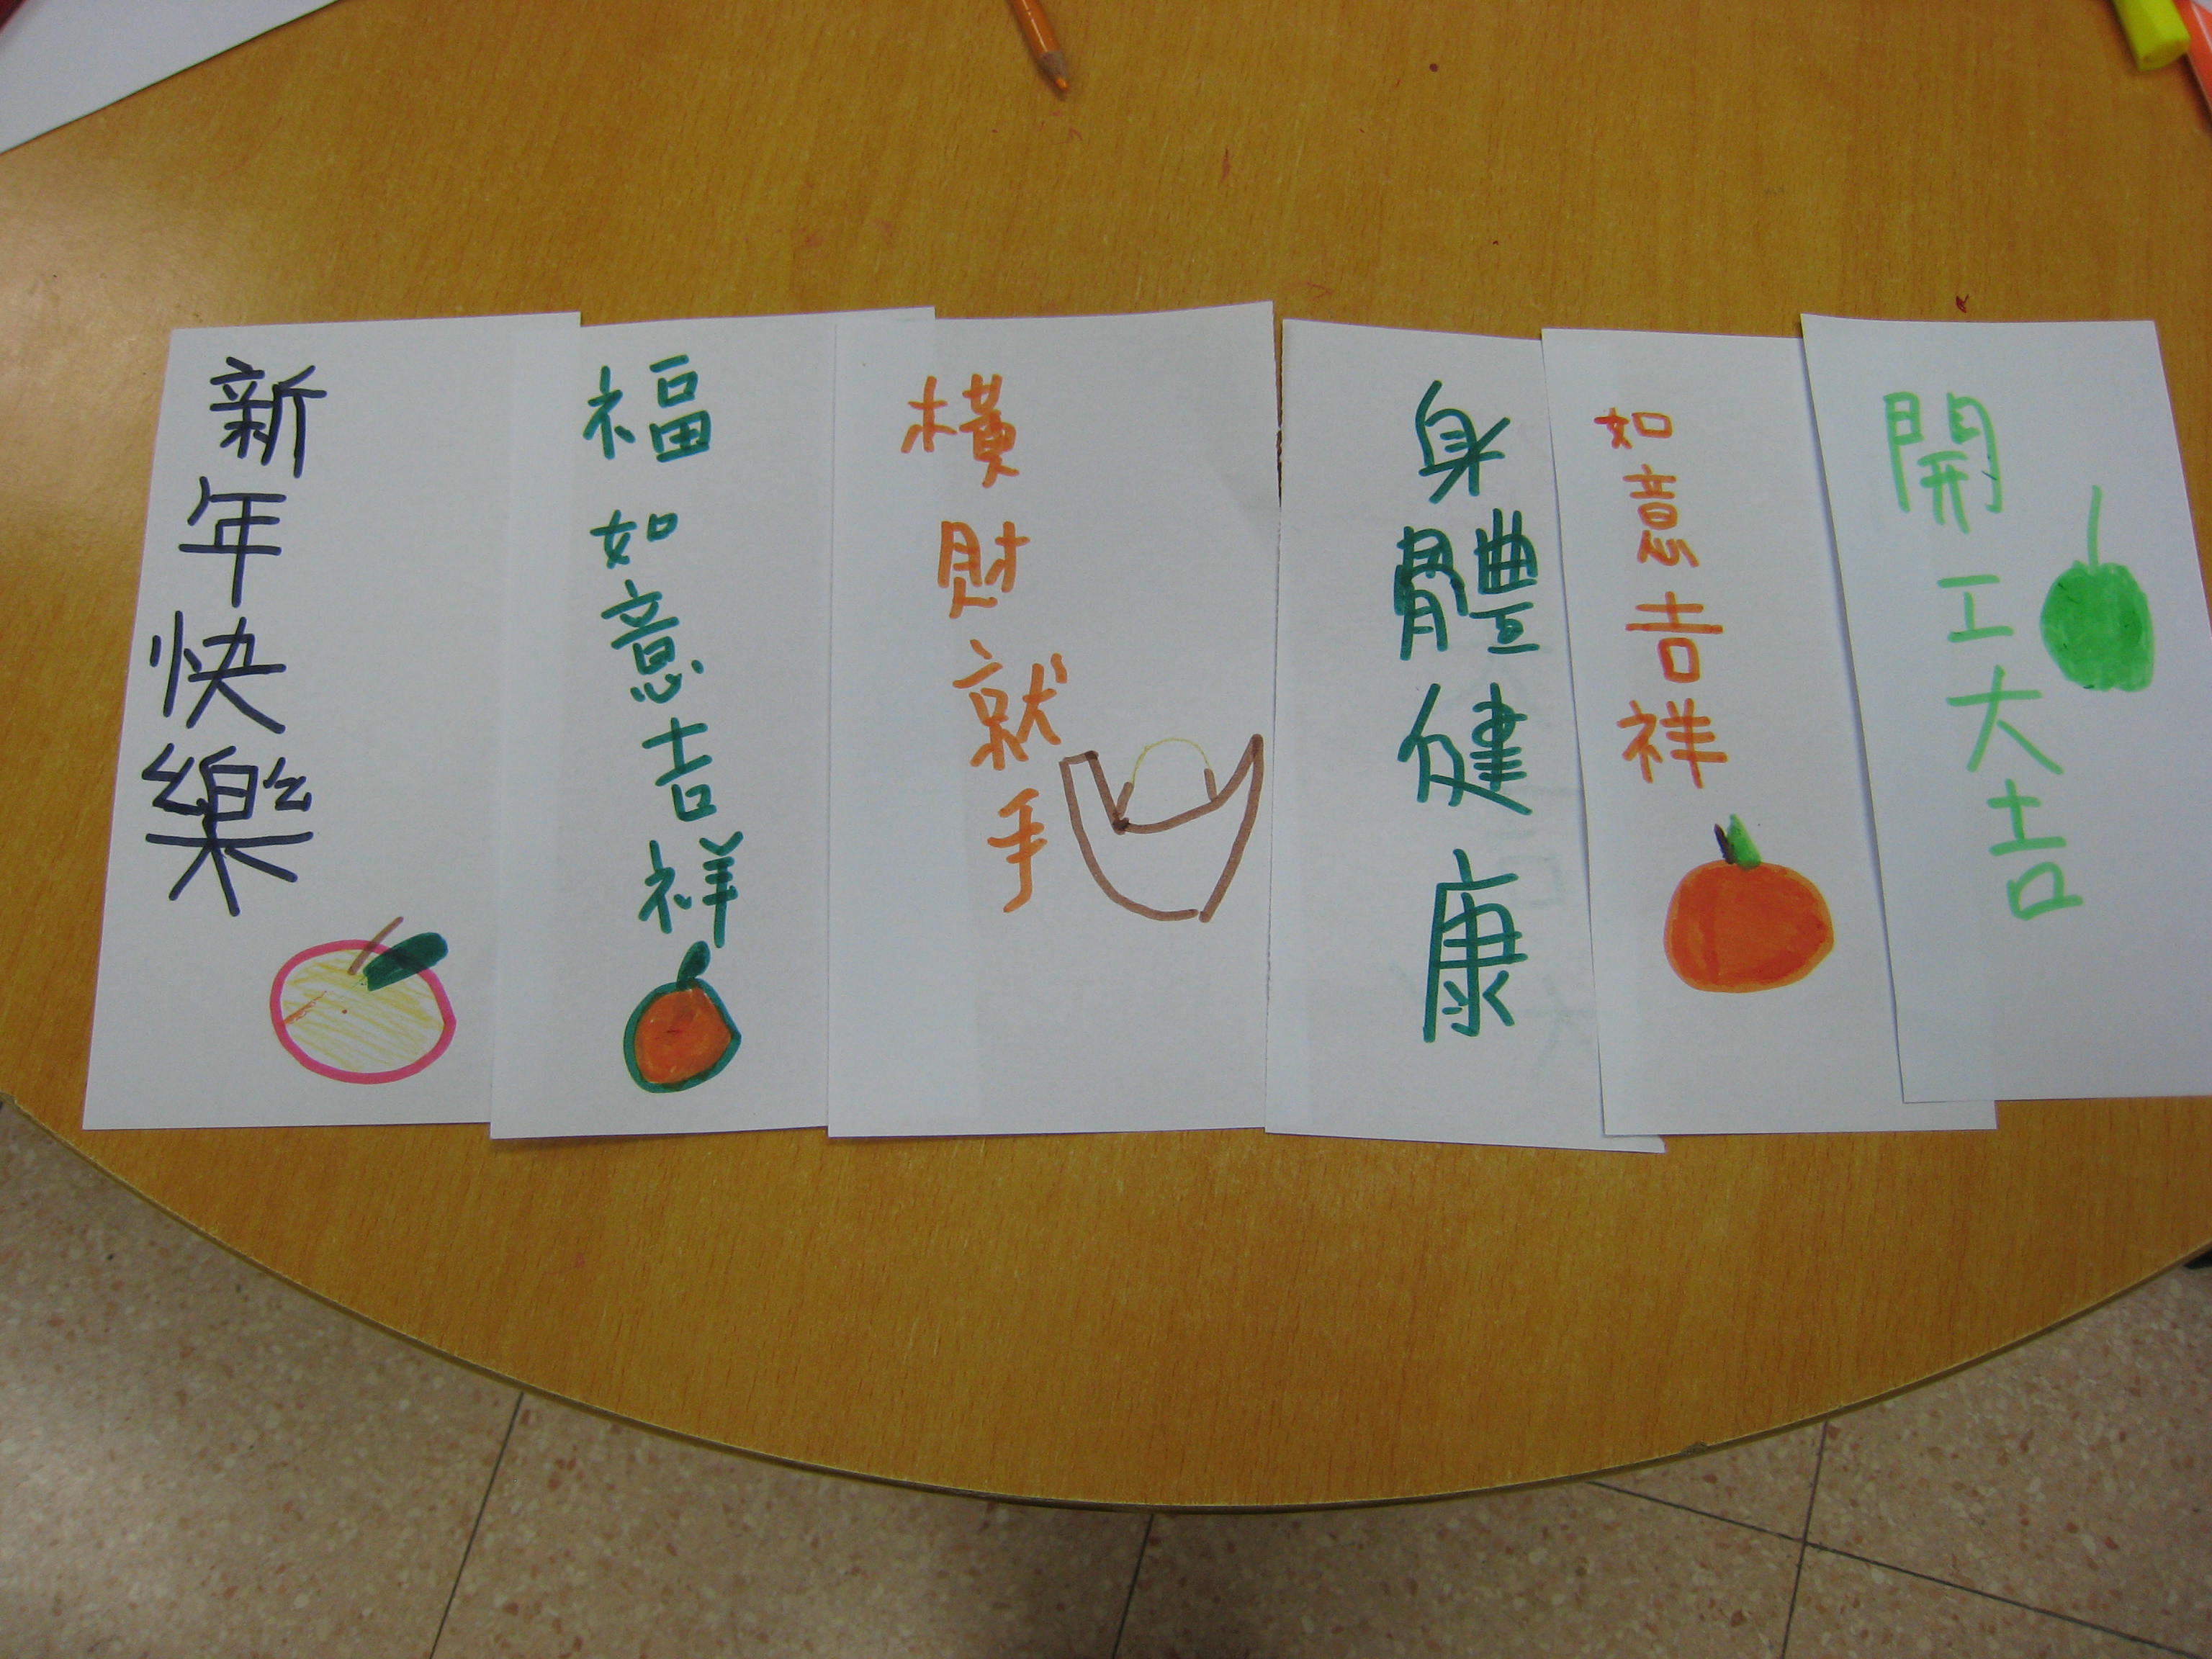 新年快樂
福如意吉祥
橫財就手
身體健康
如意吉祥
開工大吉